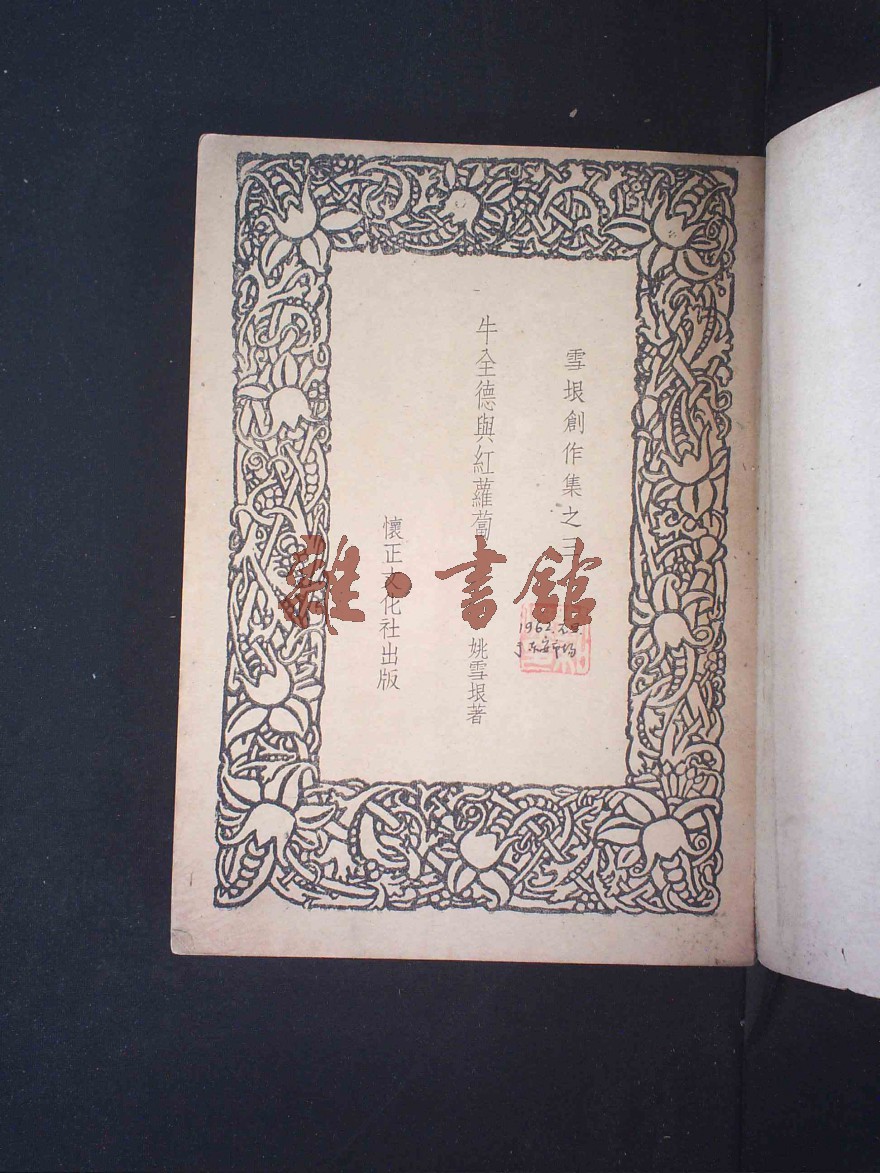 雪垠創作集之三
牛全德與紅蘿蔔
姚雪垠著
懷正文化社出版
雜·書館